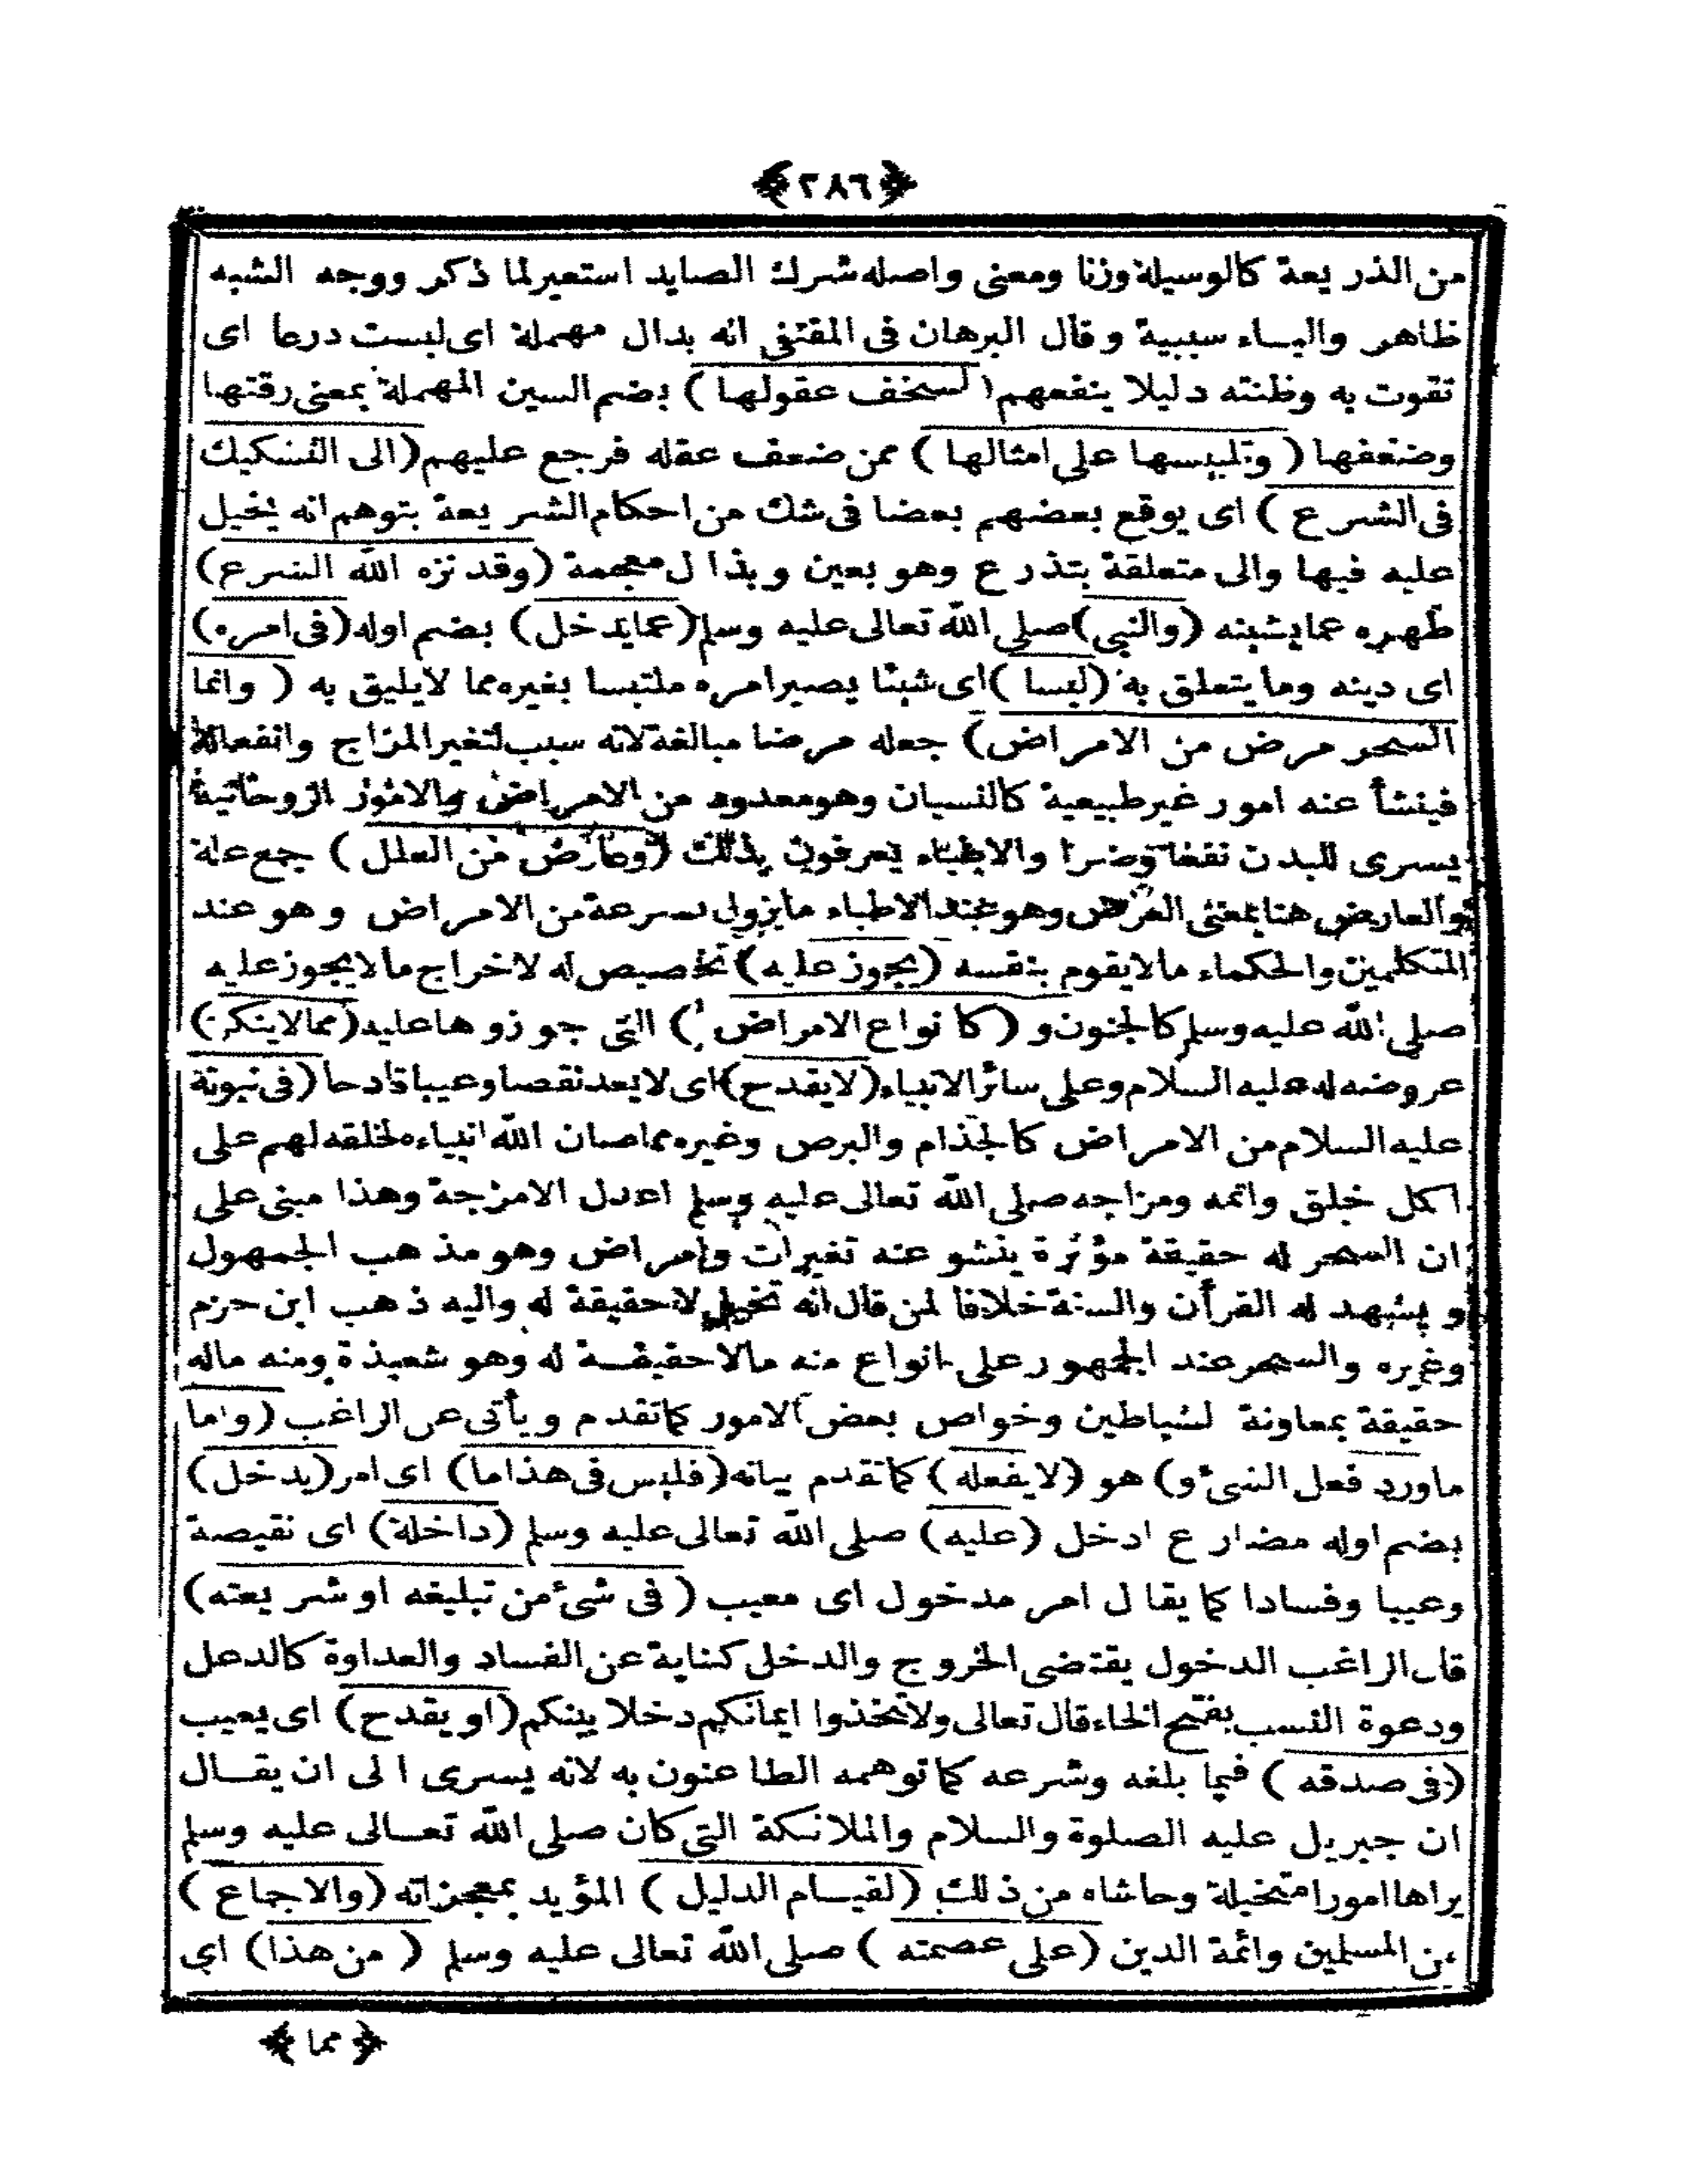 ﴿٢٨٦﴾
من الذريعة كالوسيلة وزنا ومعنى واصله شرك الصايد استعير لما ذكر ووجه الشبه
ظاهر والباء سببية وقال البرهان فى المقتفى انه بدال مهملة اى لبست درعا اى
تقوت به وظنته دليلا ينفعهم (لسخف عقولها) بضم السين المهملة بمعنى رقتها
وضعفها (وتلبيسها على امثالها) ممن ضعف عقله فرجع عليهم (الى التشكيك
فى الشرع) اى يوقع بعضهم بعضا فى شك من احكام الشريعة بتوهم انه يخيل
عليه فيها والى متعلقة بتذرع وهو بعين وبذال معجمة (وقد نزه الله الشرع)
طهره عما يشينه (والنبي) صلى الله تعالى عليه وسلم (عما يدخل) بضم اوله (فى امره)
اى دينه وما يتعلق به (لبسا) اى شيئا يصير امره ملتبسا بغيره مما لا يليق به (وانما
السحر مرض من الامراض) جعله مرضا مبالغة لانه سبب لتغير المزاج وانفعالا
فينشأ عنه امور غير طبيعية كالنسيان وهو معدود من الامراض والامور الروحانية
يسرى للبدن نفعا وضرا والاطباء يعرفون بذلك (وعارض من العلل) جمع علة
والعارض هنا بمعنى العرض وهو عند الاطباء ما يزول بسرعة من الامراض وهو عند
المتكلمين والحكماء مالا يقوم بنفسه (يجوز عليه) تخصيص له لاخراج مالا يجوز عليه
صلى الله عليه وسلم كالجنون و (كانواع الامراض) التى جوزوها عليه (مما لا ينكر)
عروضه له عليه السلام وعلى سائر الانبياء (لا يقدح) اى لا يعد نقصا وعيبا قادحا (فى نبوته
عليه السلام من الامراض كالجذام والبرص وغيره مما صان الله انبياءه لخلقه لهم على
اكمل خلق واتمه ومزاجه صلى الله تعالى عليه وسلم اعدل الامزجة وهذا مبنى على
ان السحر له حقيقة مؤثرة ينشو عنه تغيرات وامراض وهو مذهب الجمهول
و يشهد له القرأن والسنة خلافا لمن قال انه تخيل لا حقيقة له واليه ذهب ابن حزم
وغيره والسحر عند الجمهور على انواع منه مالا حقيقة له وهو شعبذة ومنه ماله
حقيقة بمعاونة لشياطين وخواص بعض الامور كما تقدم ويأتى عن الراغب (واما
ماورد فعل الشىء و) هو (لا يفعله) كما تقدم بيانه (فليس فى هذا ما) اى امر (يدخل)
بضم اوله مضارع ادخل (عليه) صلى الله تعالى عليه وسلم (داخلة) اى نقيصة
وعيبا وفسادا كما يقال امر مدخول اى معيب (فى شىء من تبليغه او شريعته)
قال الراغب الدخول يقتضى الخروج والدخل كناية عن الفساد والعداوة كالدعل
ودعوة النسب بفتح الخاء قال تعالى ولا تتخذوا ايمانكم دخلا بينكم (او يقدح) اى يعيب
(فى صدقه) فيما بلغه وشرعه كما توهمه الطاعنون به لانه يسرى الى ان يقال
ان جبريل عليه الصلوة والسلام والملائكة التى كان صلى الله تعالى عليه وسلم
يراها امورا متخيلة وحاشاه من ذلك (لقيام الدليل) المؤيد بمعجزاته (والاجماع)
من المسلمين وائمة الدين (على عصمته) صلى الله تعالى عليه وسلم (من هذا) اى
﴿مما﴾